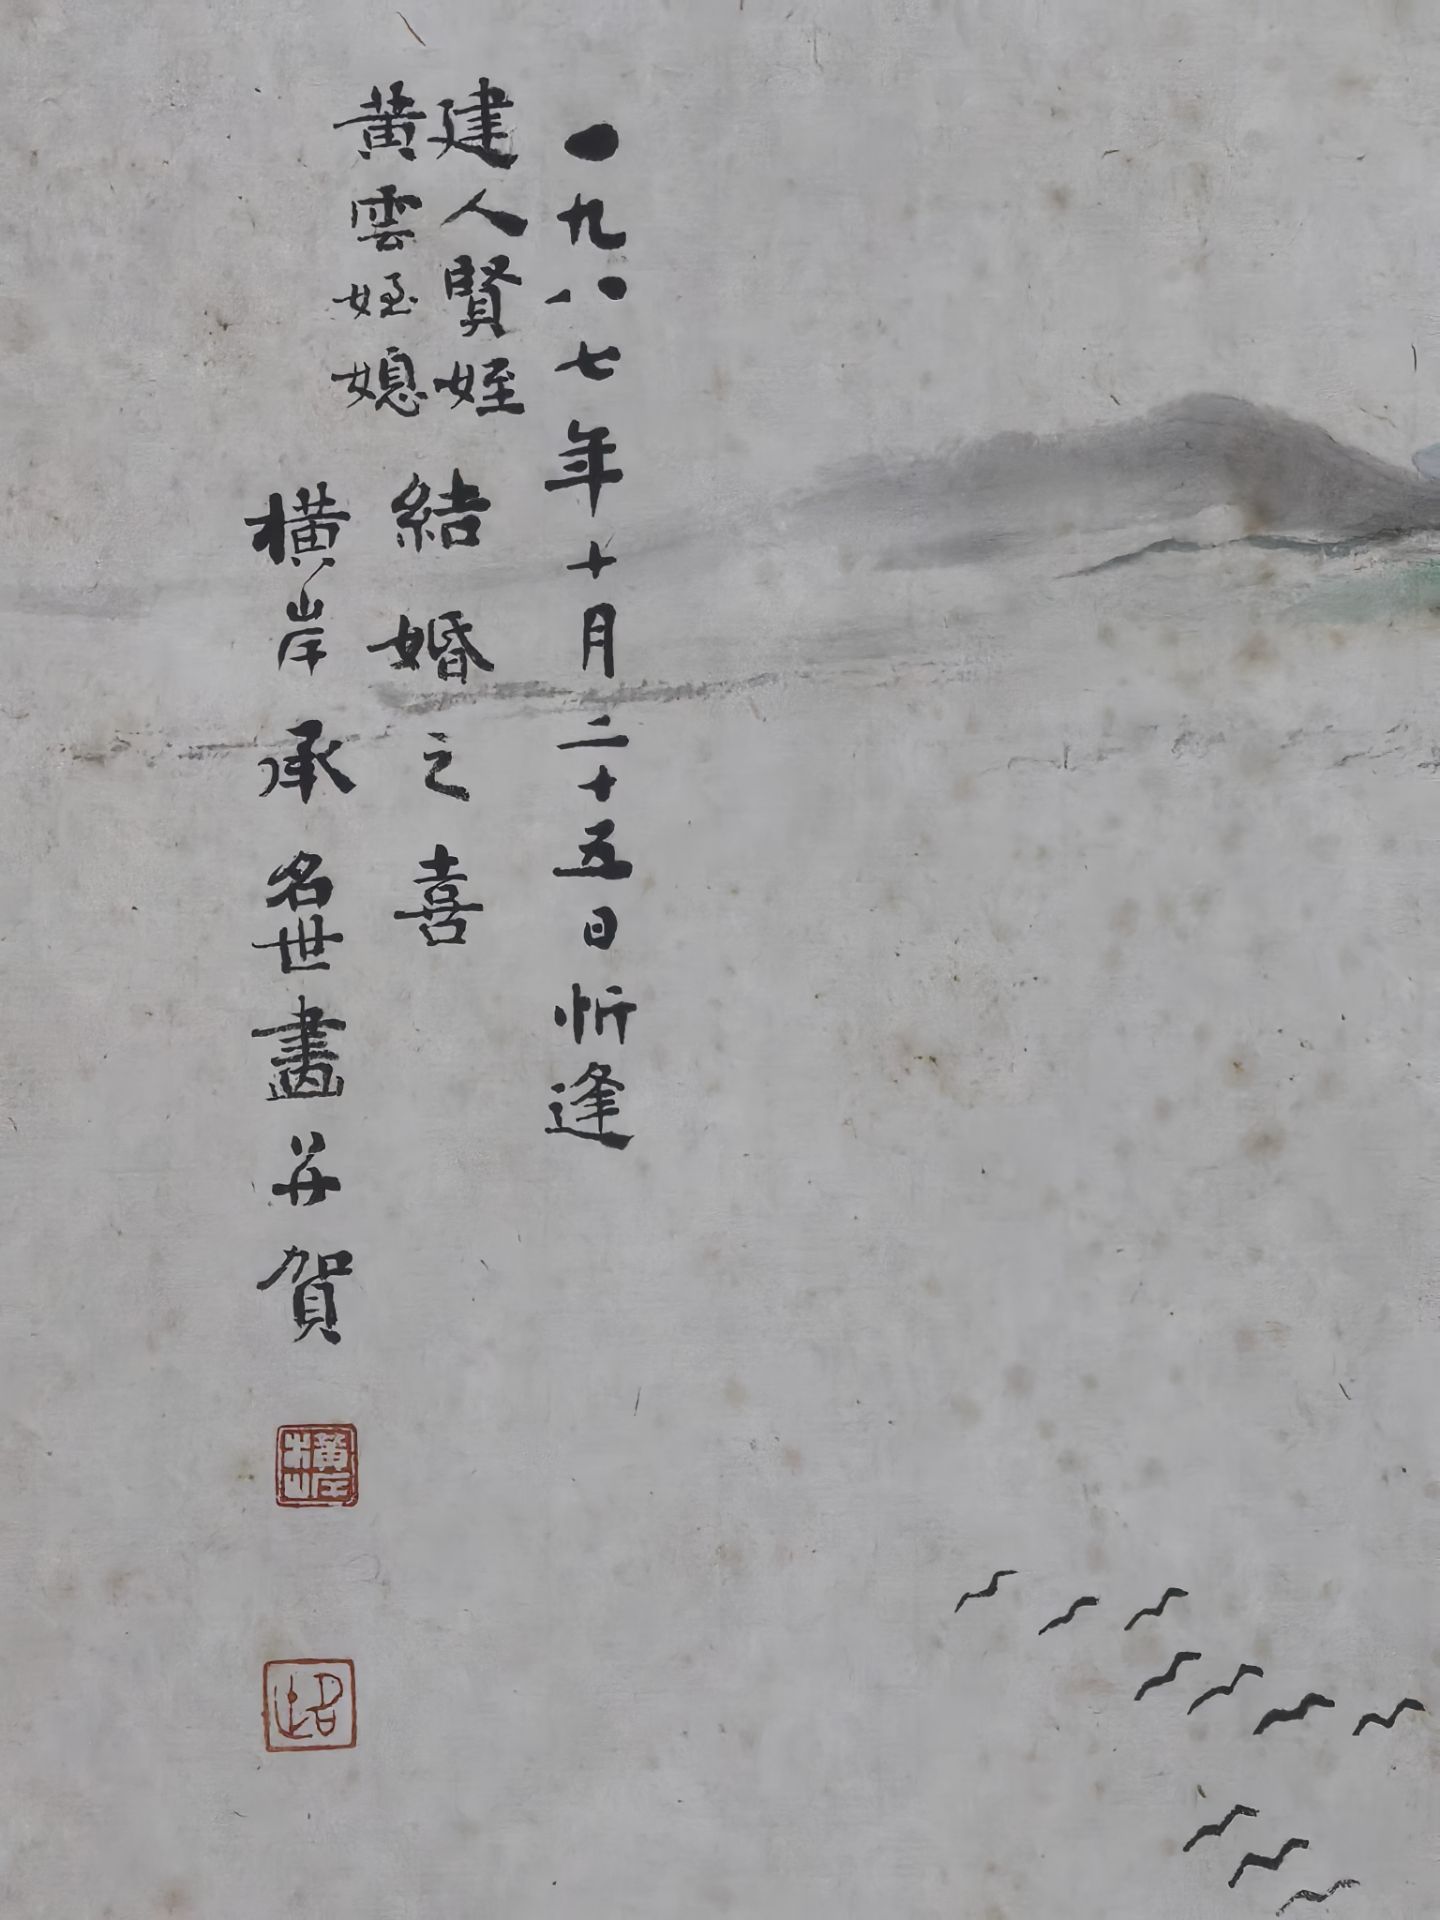 一九八七年十月二十五日忻逢
建人賢姪
黄雲姪媳
結婚之喜
横岸承名世畫并賀
横岸